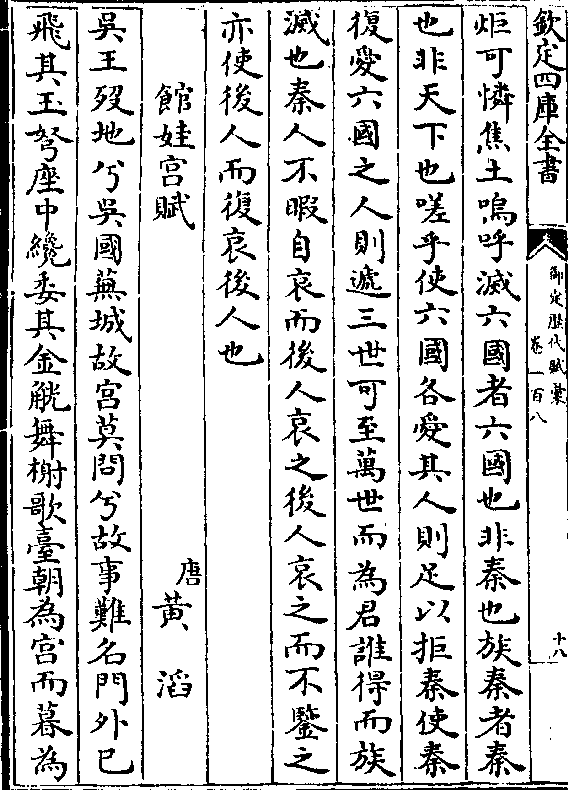 欽定四庫全書
御定歷代賦彙
卷一百八
十八
炬可憐焦土嗚呼滅六國者六國也非秦也族秦者秦
也非天下也嗟乎使六國各愛其人則足以拒秦使秦
復愛六國之人則遞三世可至萬世而為君誰得而族
滅也秦人不暇自哀而後人哀之後人哀之而不鑒之
亦使後人而復哀後人也
館娃宮賦
唐黃滔
吳王歿地兮吳國蕪城故宮莫問兮故事難名門外已
飛其玉弩座中纔委其金觥舞榭歌臺朝為宮而暮為